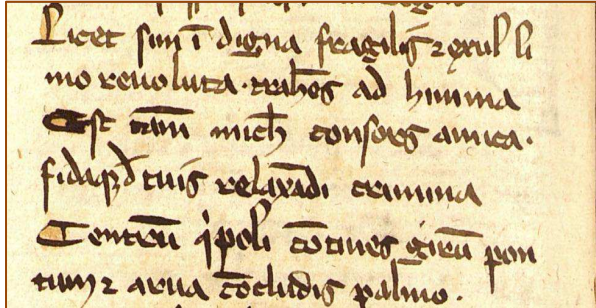 Licet sim ī digna fragilis ⁊ exul li
mo reuoluta · trahēs ad himma
Est tam̄ mich̄ consors amica ·
fidaqꝫ tuis relaxādi crimina
Centrū q̇ poli cōtines girū pon
tum ⁊ arua cōcludis palmo ·